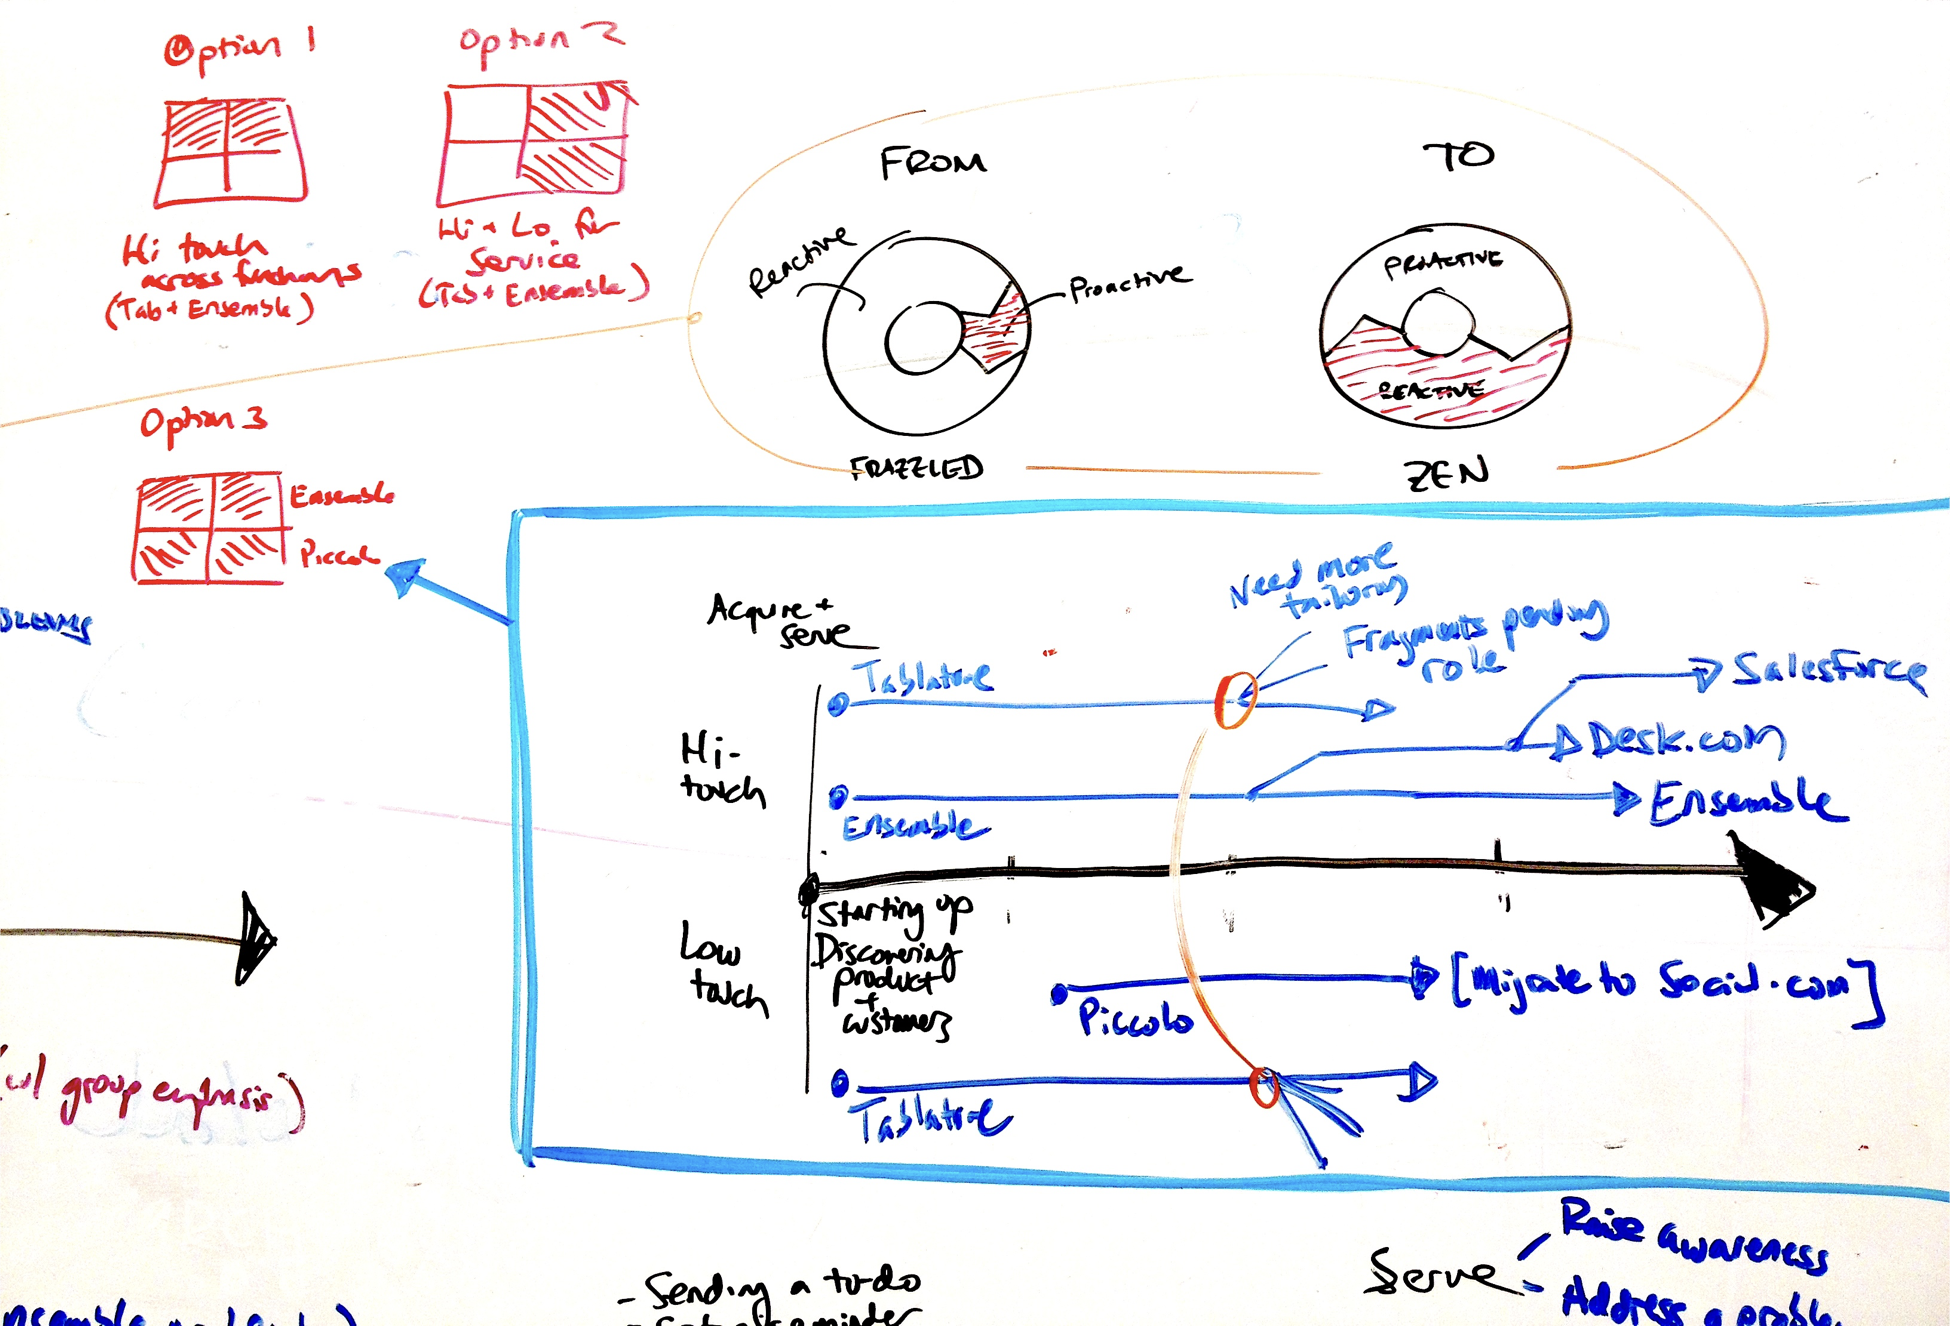 Option 1
Hi touch
across functions
(Tab + Ensemble)
Option 2
Hi + Lo for
Service
(Tab + Ensemble)
Option 3
Ensemble
Piccolo
FROM
Reactive
Proactive
FRAZZLED
TO
PROACTIVE
REACTIVE
ZEN
Acquire +
serve
Hi-
touch
Low
touch
Tablature
Need more
tailoring
Fragments pending
role
Salesforce
Desk.com
Ensemble
Ensemble
Starting up
Discovering
product
+
customers
Piccolo
[Migrate to Social.com]
Tablature
(w/ group emphasis)
- Sending a to-do
Serve
Raise awareness
Address a problem